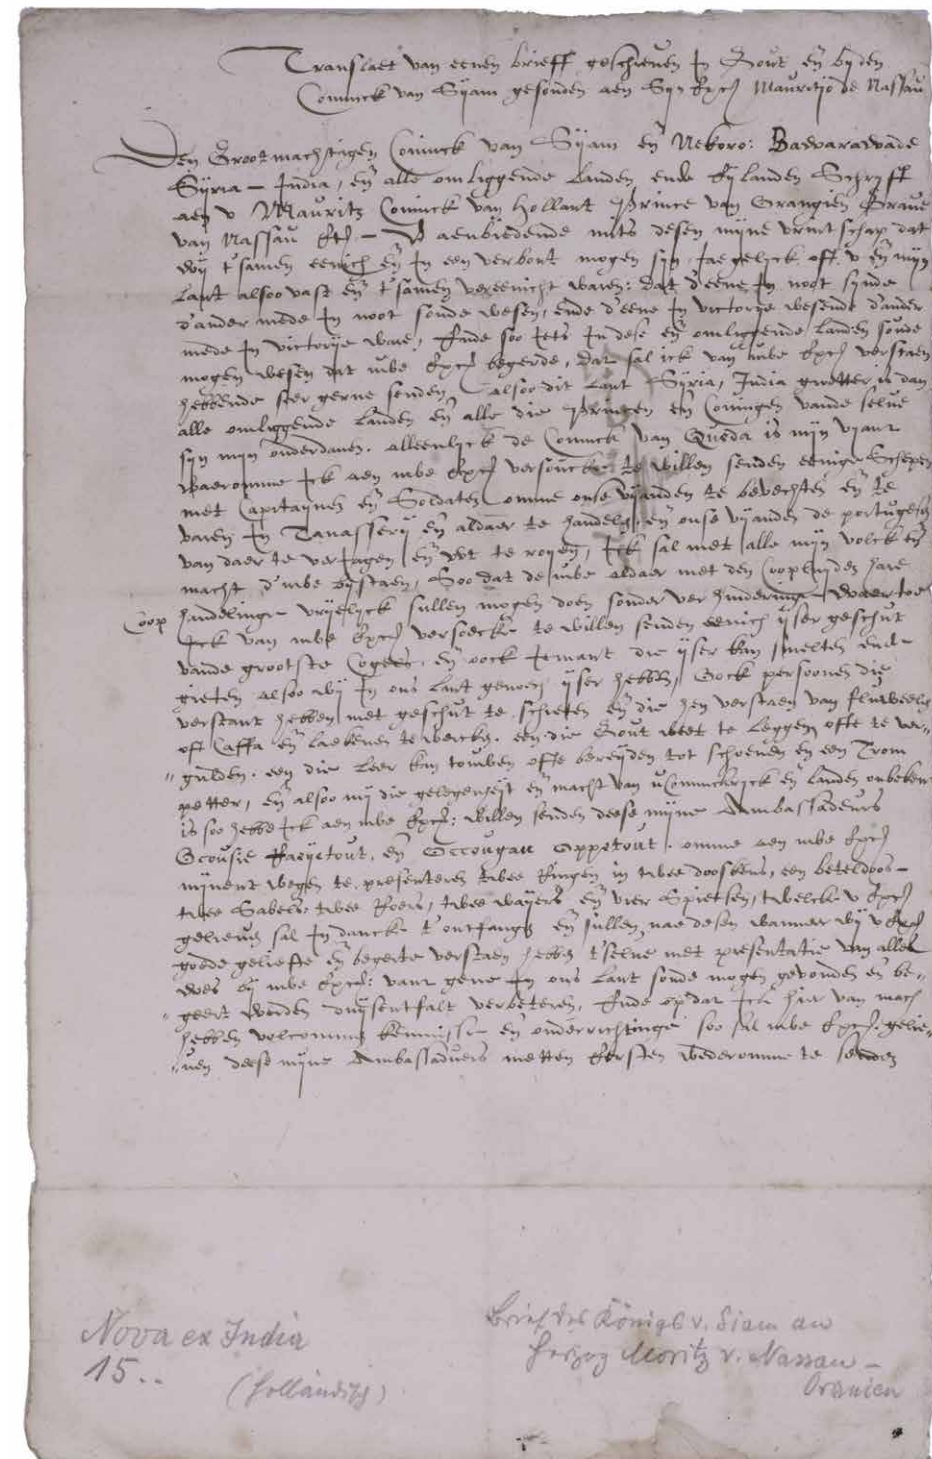 Translaet van eenen brieff geschreven In Gout eñ bij den
Coninck van Syam gesonden aen Syn Exc. Mauritio de Nassau
Den Grootmachtigen Coninck van Syam eñ Nekoro: Barvarawade
Syria – India, eñ alle omliggende Landen ende Eylanden Schryft
aen v Mauritz Coninck van Hollant Prince van Orangien Grave
van Nassau Etc. – V aenbiedende mits desen mijne vrintschap dat
wy t'samen eenich eñ In een verbont mogen syn, Jae gelyck off v eñ mijn
Lant alsoo vast eñ t'samen vereenicht waren: Dat d'eene In noot synde
d'ander mede In noot soude wesen, ende d'eene In victorije wesende d'ander
mede In victorije ware, Ende soo iets In dese eñ omliggende Landen soude
mogen wesen dat uwe Exc. begerde, Dat sal ick van uwe Exc. verstaen
hebbende seer gerne senden, alsoo dit Lant Syria, India is dan
alle omliggende Landen eñ alle die Princen eñ Coningen vande selve
syn mijn onderdanen. alleenlyck de Coninck van Queda is mijn vyant
Waeromme Ick aen uwe Exc. versoucke te willen senden eenige Schepen
met Capitaynen eñ Soldaten omme onse vyanden te bevechten eñ te
varen In Tanassery eñ aldaer te handelen, eñ onse vyanden de portugesen
van daer te verJagen eñ wt te royen, Ick sal met alle mijn volck eñ
macht d'uwe bystaen, Soo dat de uwe aldaer met den Coopluyden hare
Coop handelinge vryelyck sullen mogen doen sonder verhinderinge Waer toe
Ick van uwe Exc. versoecke te willen senden eenich yser geschut
vande grootste eñ oock Iemant die yser kan smelten ende
gieten alsoo wy In ons Lant genoech yser hebben, Oock persoonen die
verstant hebben met geschut te schieten eñ die hen verstaen van fluweelen
oft Caffa eñ Laekenen te wercken. een die Gout weet te Leggen ofte te ver=
"gulden. een die Leer kan touwen ofte bereyden tot schoenen en een Trom
petter, eñ alsoo mij die gelegenheyt eñ macht van u Coninckryck eñ Landen onbekent
is soo hebbe Ick aen uwe Exc: willen senden deese mijne Ambassadeurs
omme aen uwe Exc.
mijnent wegen te presenteren twee Ringen in twee dooskens, een beteldoos –
twee Sabels twee Roers, twee wayers eñ vier Spietsen, twelck v Exc.
gelieven sal In danck t'ontfangen eñ sullen nae desen wanneer wij v Exc.
goede geliefte eñ begeerte verstaen hebben t'selve met presentatie van allen
wes by uwe Exc: vant gene In ons Lant soude mogen gevonden eñ be=
"geert worden duysentfalt verbeteren. Ende op dat Ick hier van mach
hebben volcomene kennisse eñ onderrichtinge soo sal uwe Exc. gelie=
"uen deese mijne Ambassadeurs metten Eersten wederomme te senden
Nova ex India
15..
(holländisch)
Brief des Königs v. Siam an
Herzog Moritz v. Nassau –
Oranien